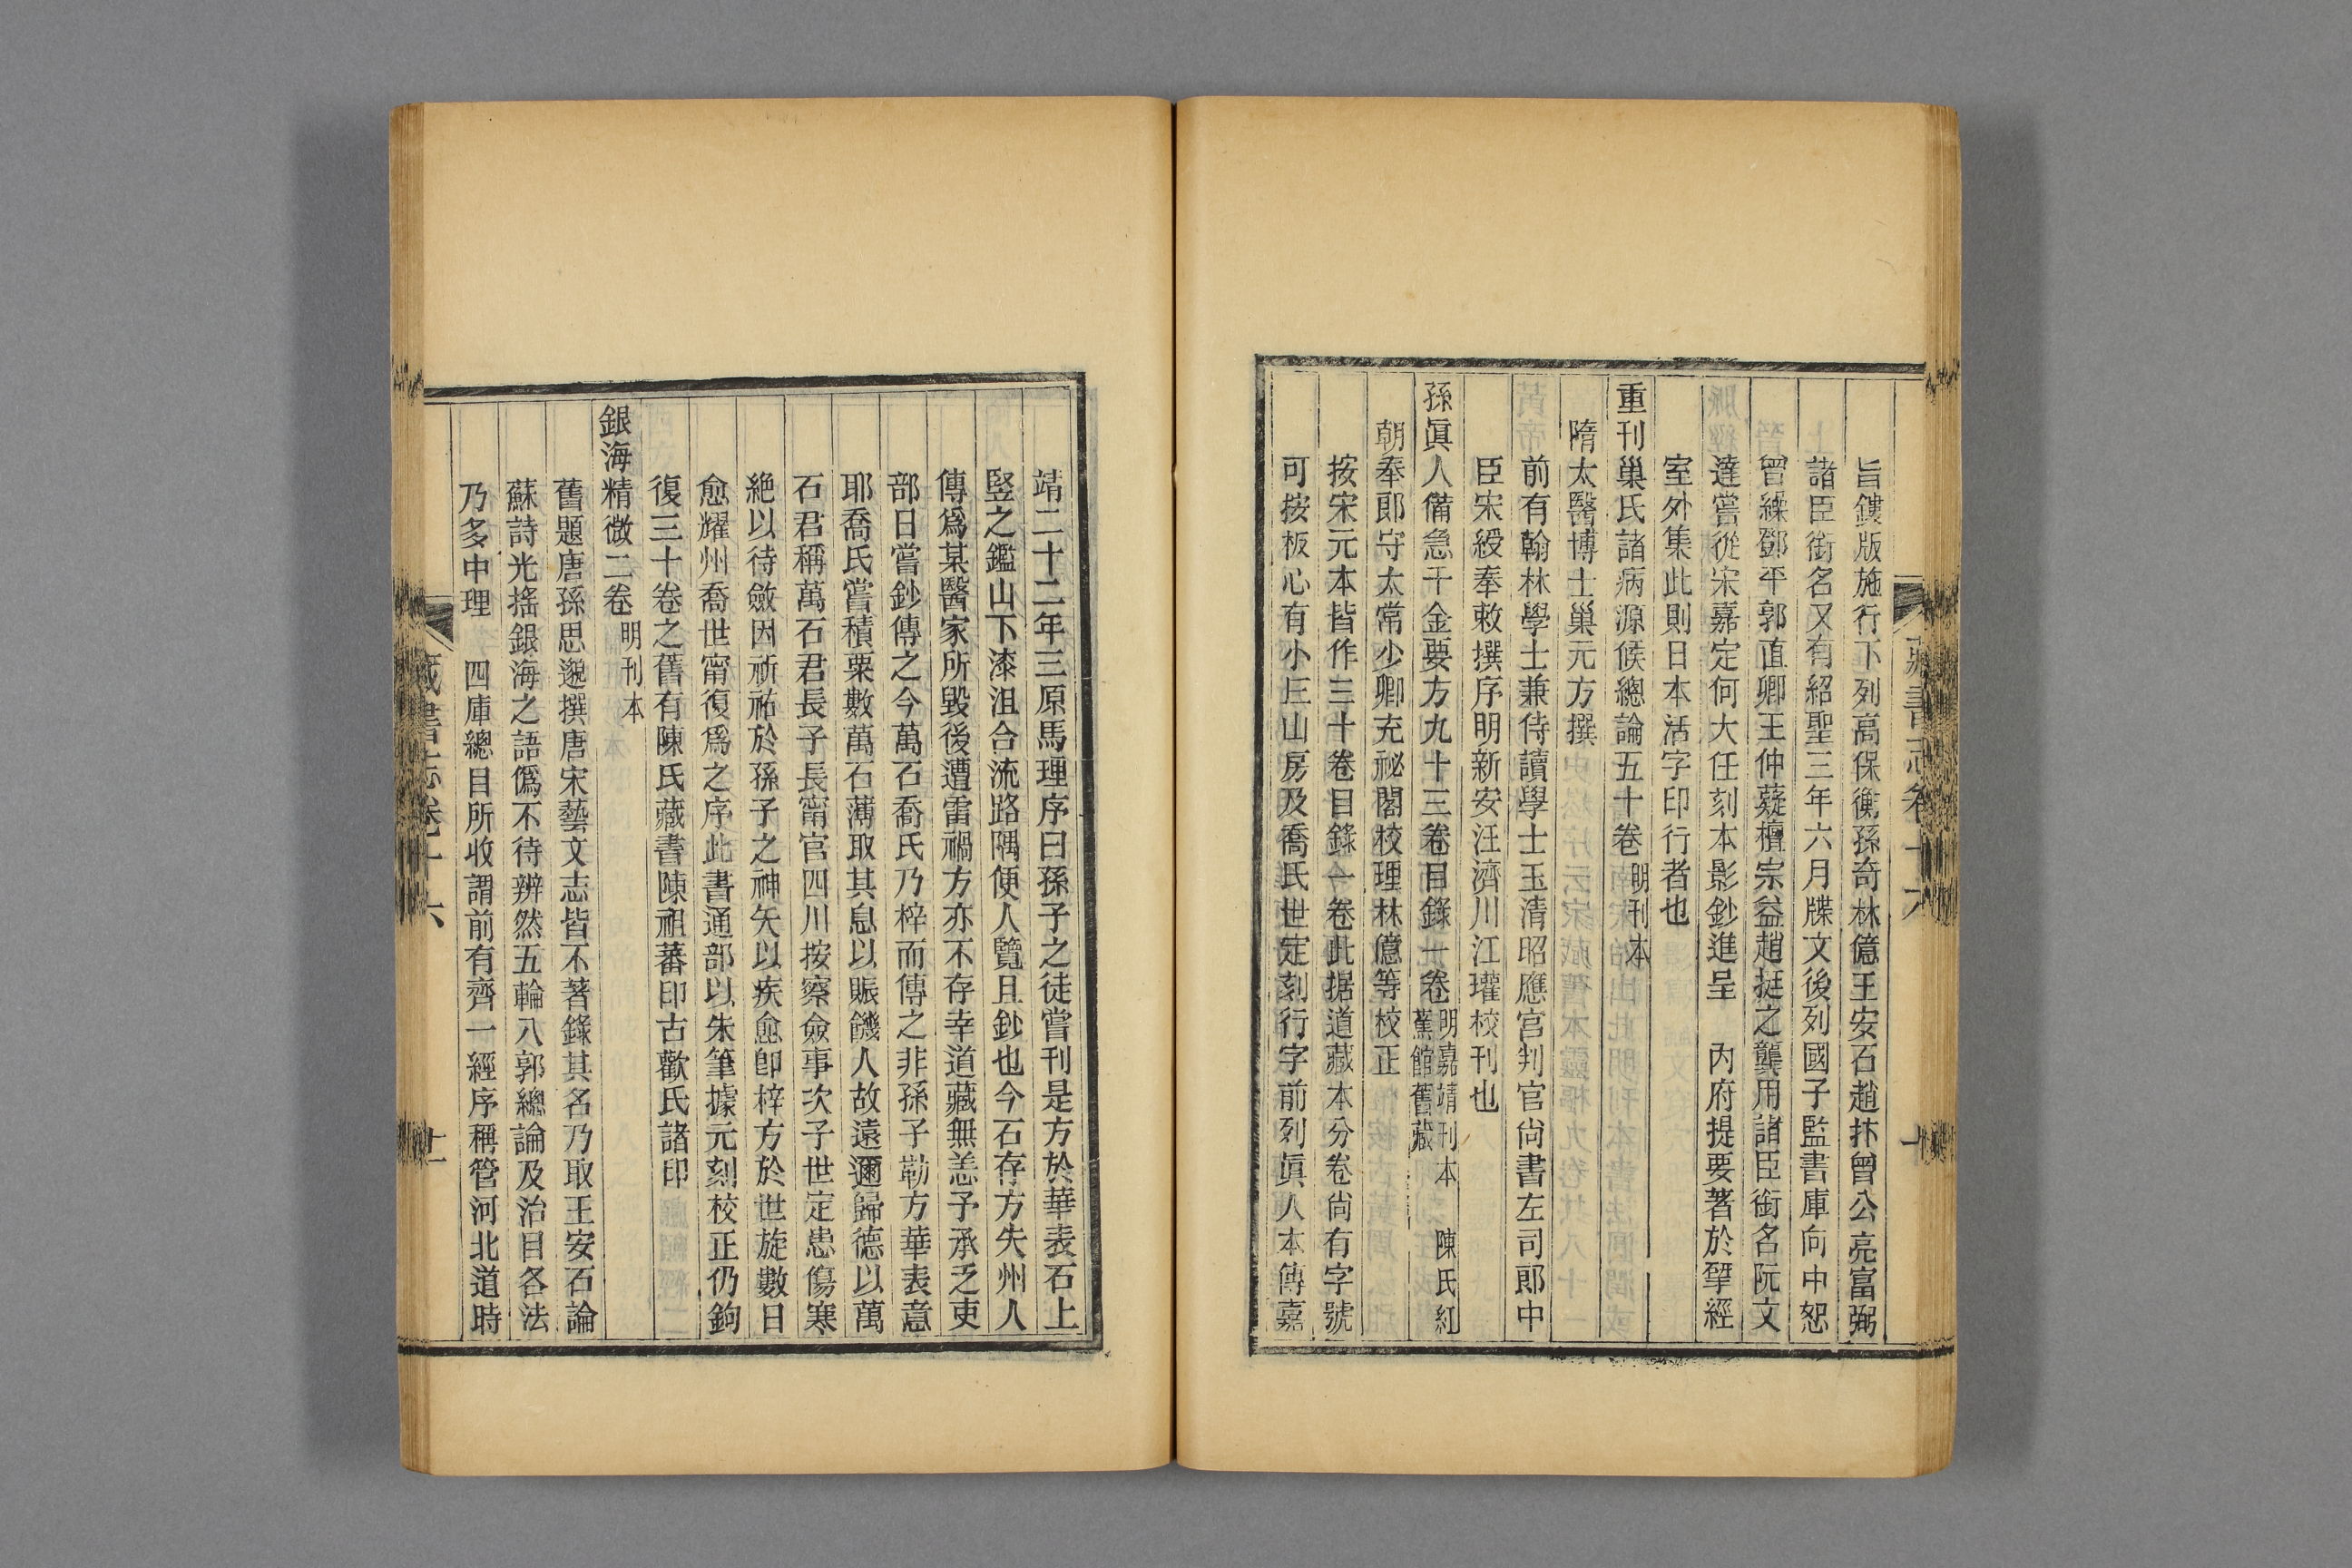 旨鏤版施行下列高保衡孫奇林億王安石趙抃曾公亮富弼
諸臣銜名又有紹聖三年六月牒文後列國子監書庫向中恕
曾繰鄧平郭直卿王仲薿檀宗益趙挺之龔用諸臣銜名阮文
達嘗從宋嘉定何大任刻本影鈔進呈 内府提要著於揅經
室外集此則日本活字印行者也
重刊巢氏諸病源候總論五十卷 明刊本
隋太醫博士巢元方撰
前有翰林學士兼侍讀學士玉清昭應宫判官尙書左司郞中
臣宋綬奉敕撰序明新安汪濟川江瓘校刊也
孫眞人備急千金要方九十三卷目錄一卷 明嘉靖刊本 陳氏紅蕉館舊藏
朝奉郞守太常少卿充祕閣校理林億等校正
按宋元本皆作三十卷目錄一卷此据道藏本分卷尙有字號
可按板心有小丘山房及喬氏世定刻行字前列眞人本傳嘉
靖二十二年三原馬理序曰孫子之徒嘗刊是方於華表石上
竪之鑑山下漆沮合流路隅便人覽且鈔也今石存方失州人
傳爲某醫家所毀後遭雷禍方亦不存幸道藏無恙予承乏吏
部日嘗鈔傳之今萬石喬氏乃梓而傳之非孫子勒方華表意
耶喬氏嘗積粟數萬石薄取其息以賑饑人故遠邇歸德以萬
石君稱萬石君長子長甯官四川按察僉事次子世定患傷寒
絶以待斂因祈祐於孫子之神矢以疾愈卽梓方於世旋數日
愈耀州喬世甯復爲之序此書通部以朱筆據元刻校正仍鉤
復三十卷之舊有陳氏藏書陳祖蕃印古歡氏諸印
銀海精微二卷 明刊本
舊題唐孫思邈撰唐宋藝文志皆不著錄其名乃取王安石論
蘇詩光搖銀海之語僞不待辨然五輪八郭總論及治目各法
乃多中理 四庫總目所收謂前有齊一經序稱管河北道時
藏書志卷十六
十
藏書志卷十六
十一